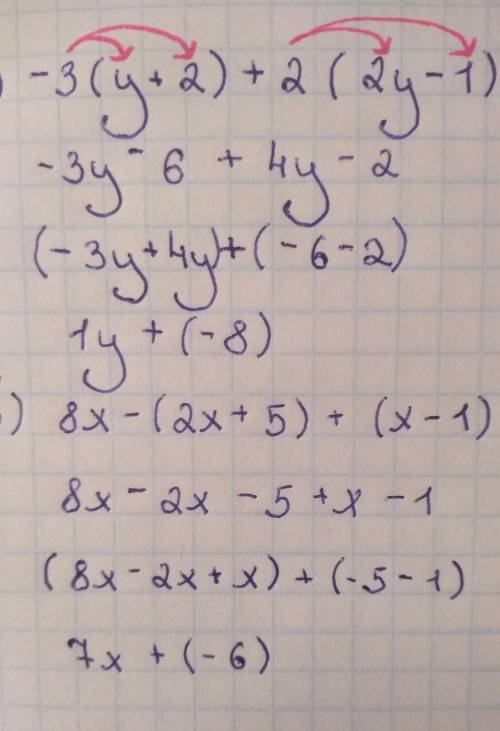 ) -3(y+2) + 2 ( 2y-1)
-3y - 6 + 4y - 2
(-3y+4y)+(-6-2)
1y + (-8)
) 8x-(2x+5) + (x-1)
8x - 2x - 5 + x - 1
(8x-2x+x) + (-5-1)
7x + (-6)